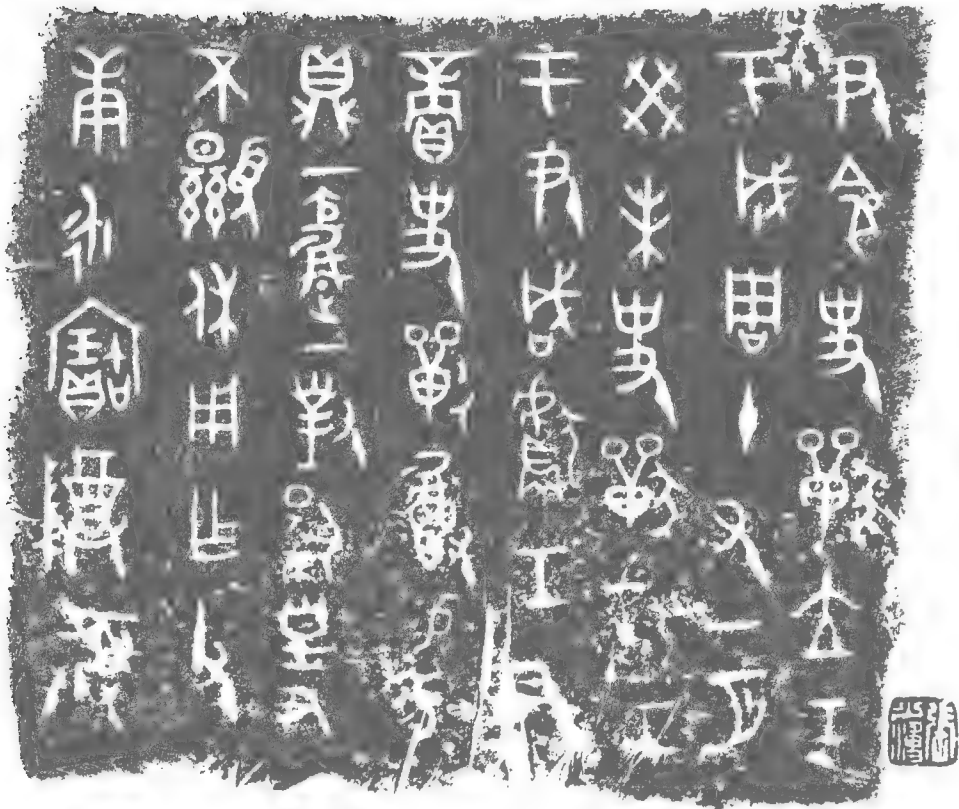 尹令史獸立工
于成周十又一月
癸未史獸獻工
于尹咸獻工尹
商史獸祼易豕
鼎一爵一對揚皇尹
不顯休用乍父
庚永寶尊彝